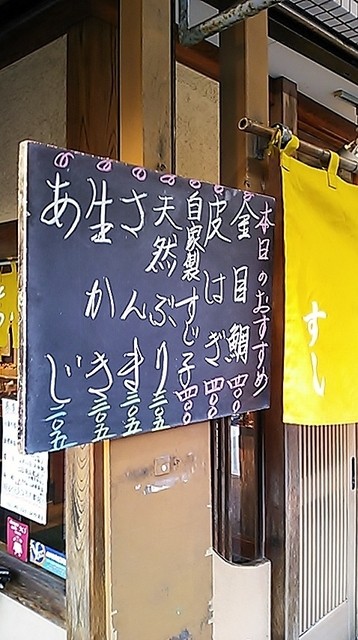 本日のおすすめ
金目鯛 四〇〇
皮はぎ 四〇〇
自家製すじ子 四〇〇
天然ぶり 三〇五
さんま 三〇五
生かき 三〇五
あじ 二〇五
すし